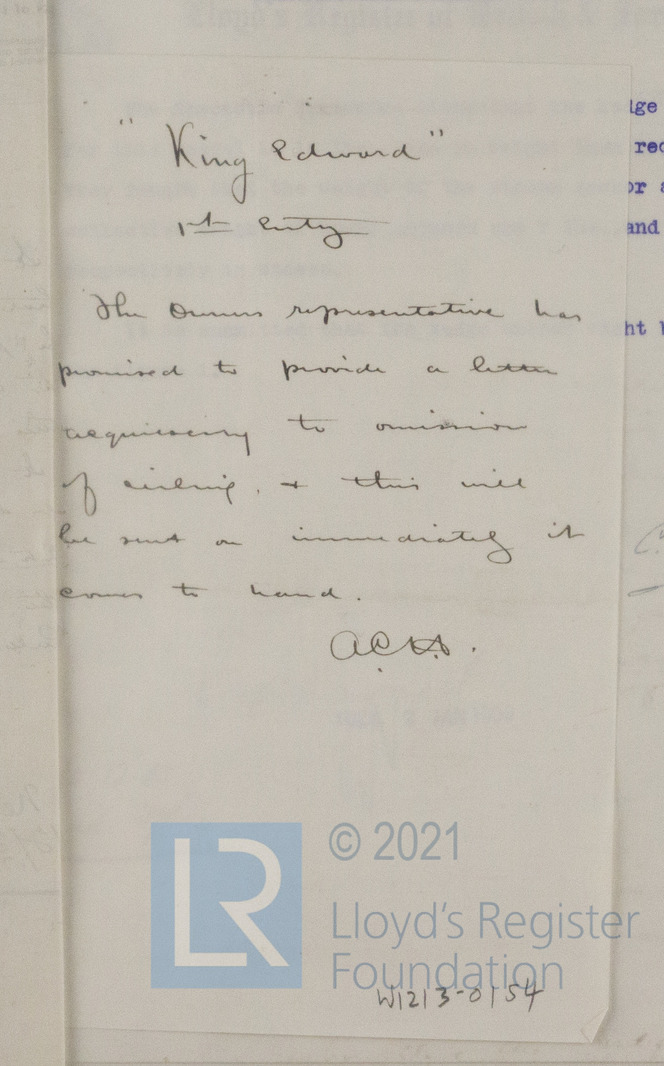 "King Edward"
1st Entry
The Owners representative has
promised to provide a letter
acquiescing to omission
of ceiling, & this will
be sent on immediately it
comes to hand.
lge
rec
or a
and
ht
© 2021
LR
Lloyd's Register
Foundation
W1213-0154